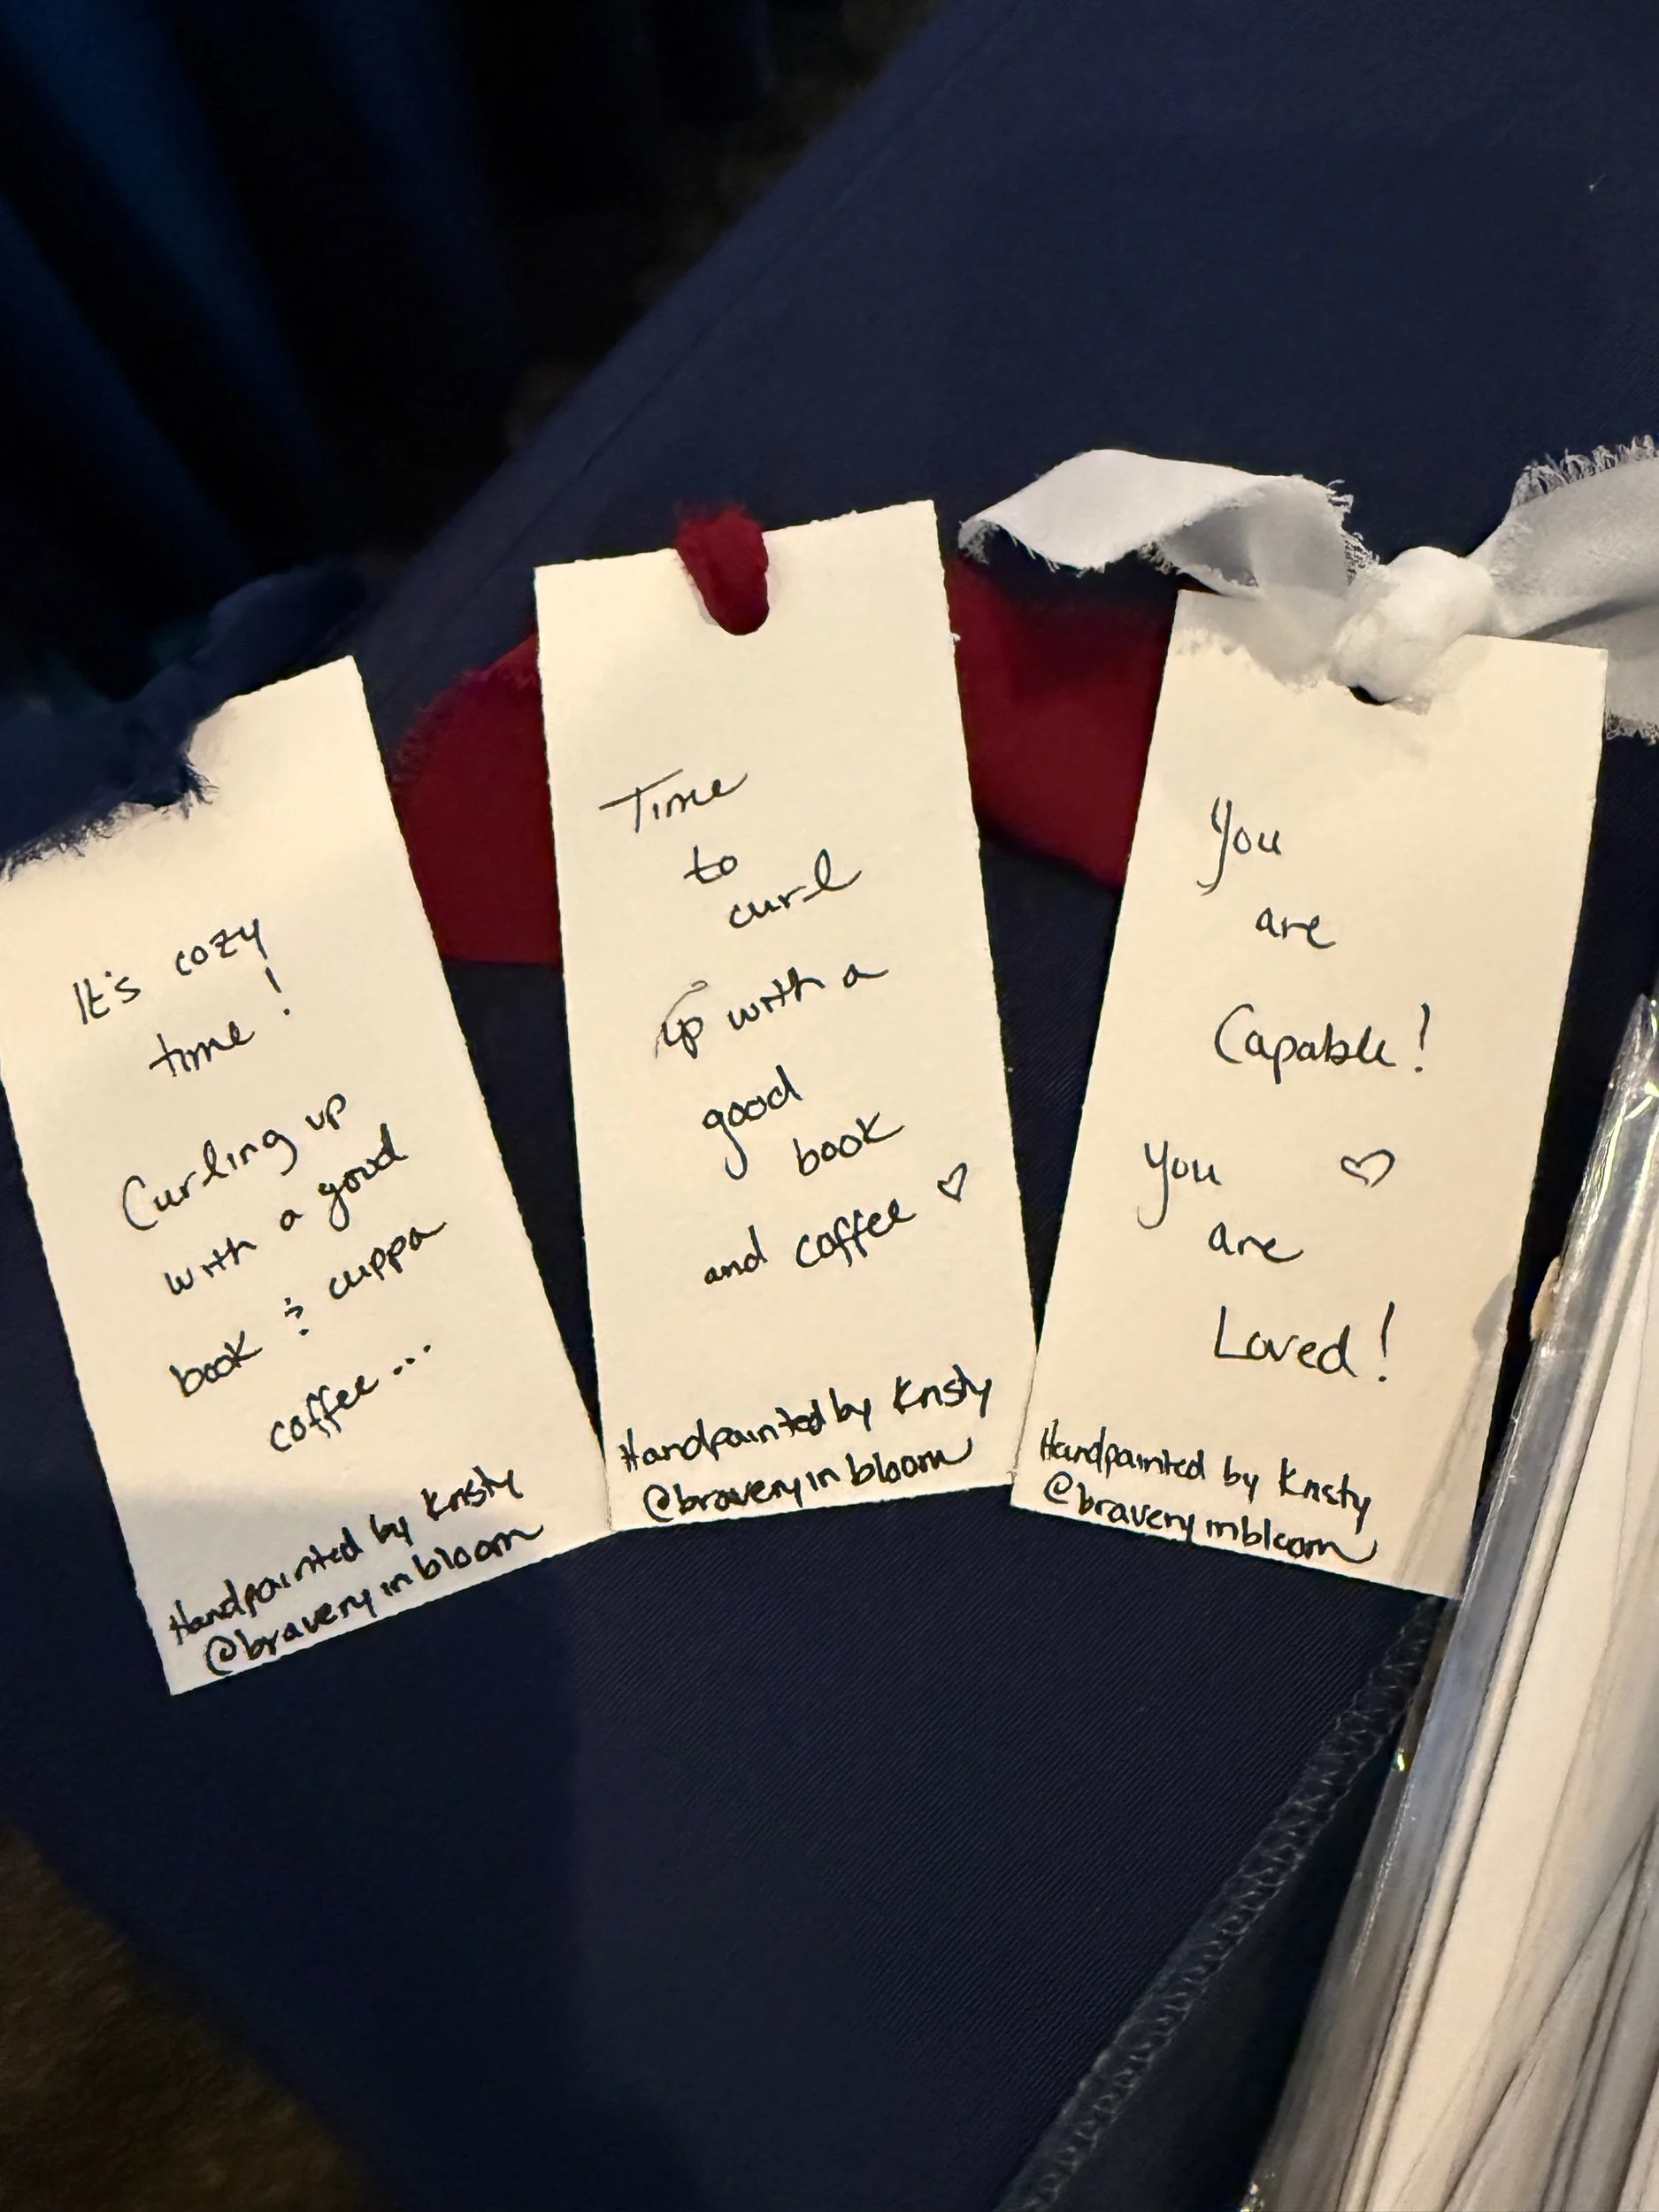 It's cozy
time!
Curling up
with a good
book & cuppa
coffee...
Handpainted by Kristy
@bravery in bloom
Time
to
curl
up with a
good
book
and coffee ♡
Handpainted by Kristy
@bravery in bloom
You
are
Capable!
You ♡
are
Loved!
Handpainted by Kristy
@braveryinbloom